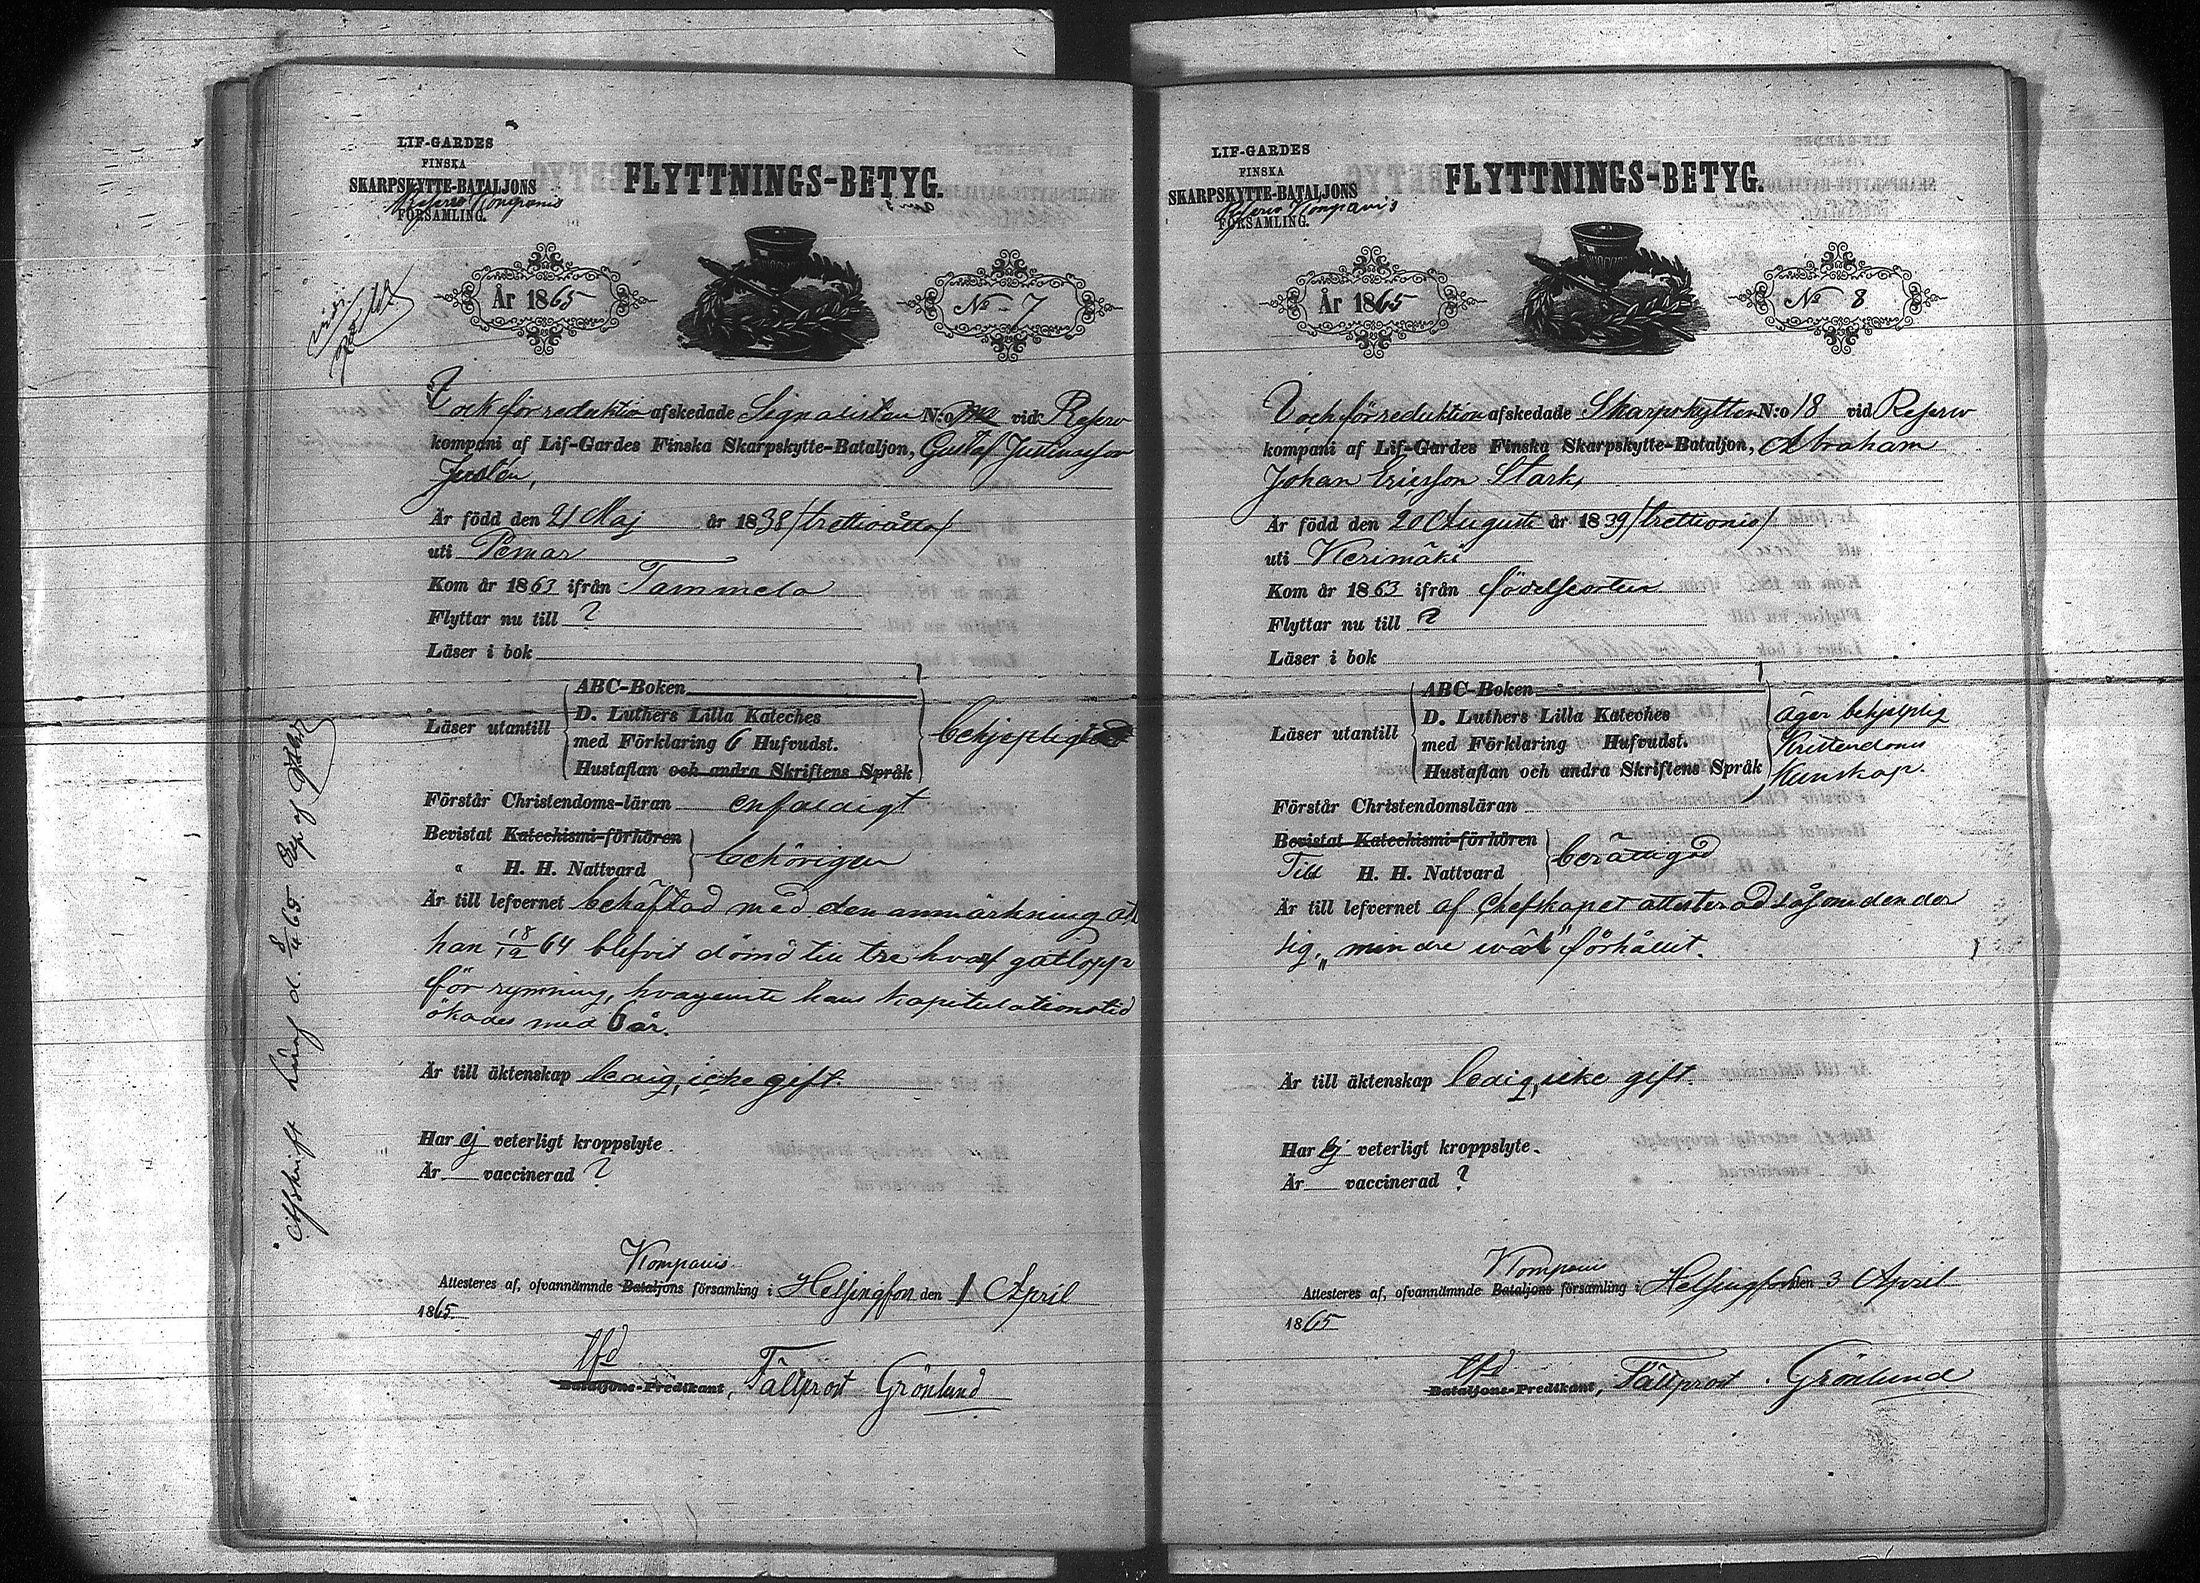 LIF-GARDES
FINSKA
SKARPSKYTTE-BATALJONS
Reserv Kompanis
FÖRSAMLING.
FLYTTNINGS-BETYG.
År 1865
No 7
afskedade Signalisten N:o vid Reserv
kompani af Lif-Gardes Finska Skarpskytte-Bataljon, Gustaf
Är född den 21 Maj år 1838 /trettioåtta/
uti Pemar
Kom år 1863 ifrån Tammela
Flyttar nu till ?
Läser i bok
ABC-Boken
Läser utantill
D. Luthers Lilla Kateches
med Förklaring 6 Hufvudst.
Hustaflan och andra Skriftens Språk
Förstår Christendoms-läran enfaldigt
Bevistat Katechismi-förhören
" H. H. Nattvard
behörigen
Är till lefvernet behäftad med den anmärkning att
han 18/12 64 blifvit dömd till tre hvarf gatlopp
för rymning, hvarjemte hans kapitulationstid
ökades med 6 år.
Är till äktenskap ledig, icke gift.
Har ej veterligt kroppslyte.
Är vaccinerad ?
Kompanis
Attesteres af, ofvannämnde Bataljons församling i Helsingfors den 1 April
1865.
Bataljons-Predikant, Fältprost Grönlund
Afskrift
LIF-GARDES
FINSKA
SKARPSKYTTE-BATALJONS
Reserv Kompanis
FÖRSAMLING.
FLYTTNINGS-BETYG.
År 1865
No 8
afskedade Skarpskytten N:o 18 vid Reserv
kompani af Lif-Gardes Finska Skarpskytte-Bataljon, Abraham
Johan Ericsson Stark,
Är född den 20 Augusti år 1839 /trettionio/
uti Kerimäki
Kom år 1863 ifrån födelseorten
Flyttar nu till ?
Läser i bok
ABC-Boken
Läser utantill
D. Luthers Lilla Kateches
med Förklaring Hufvudst.
Hustaflan och andra Skriftens Språk
äger behjelplig
Kristendoms
Kunskap.
Förstår Christendomsläran
Bevistat Katechismi-förhören
Till H. H. Nattvard
berättigad
Är till lefvernet af Chefskapet attesterad såsom den der
sig, "mindre väl" förhållit.
Är till äktenskap ledig, icke gift.
Har ej veterligt kroppslyte.
Är vaccinerad ?
Kompanis
Attesteres af, ofvannämnde Bataljons församling i Helsingfors den 3 April
1865
Bataljons-Predikant, Fältprost Grönlund